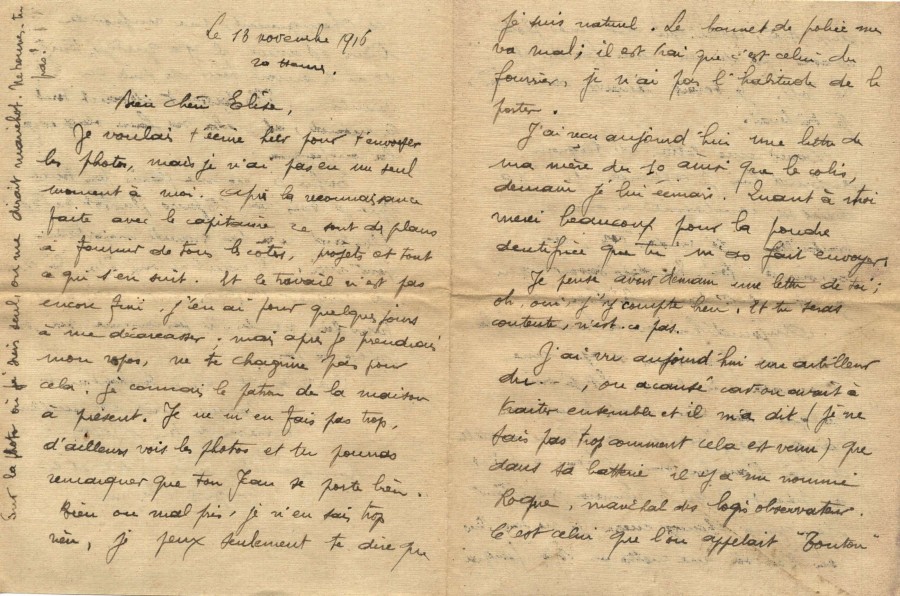 Le 13 novembre 1916
20 Heures.
Bien chère Elise,
Je voulais t'écrire hier pour t'envoyer
les photos, mais je n'ai pas eu un seul
moment à moi. Après la reconnaissance
faite avec le capitaine ce sont des plans
à fournir de tous les côtés, projets et tout
ce qui s'en suit. Et le travail n'est pas
encore fini, j'en ai pour quelques jours
à me décarcasser; mais après je prendrais
mon repos, ne te chagrine pas pour
cela: je connais le patron de la maison
à présent. Je ne m'en fais pas trop,
d'ailleurs vois les photos et tu pourras
remarquer que ton Jean se porte bien.
Bien ou mal pris, je n'en sais trop
rien, je peux seulement te dire que
je suis naturel. Le bonnet de police me
va mal; il est vrai que c'est celui du
fourrier, je n'ai pas l'habitude de le
porter.
J'ai reçu aujourd'hui une lettre de
ma mère du 10 ainsi que le colis,
demain je lui écrirais. Quant à toi
merci beaucoup pour la poudre
dentifrice que tu m'as fait envoyer.
Je pense avoir demain une lettre de toi;
oh, oui, j'y compte bien. Et tu seras
contente, n'est-ce pas.
J'ai vu aujourd'hui un artilleur
du ..., on a causé car on avait à
traiter ensemble et il m'a dit (je ne
sais pas trop comment cela est venu) que
dans sa batterie il y a un nommé
Roque, maréchal des logis observateur.
C'est celui que l'on appelait "Tonton"
Sur la photo où je suis seul on me dirait manchot. Ne t'en fais pas!!